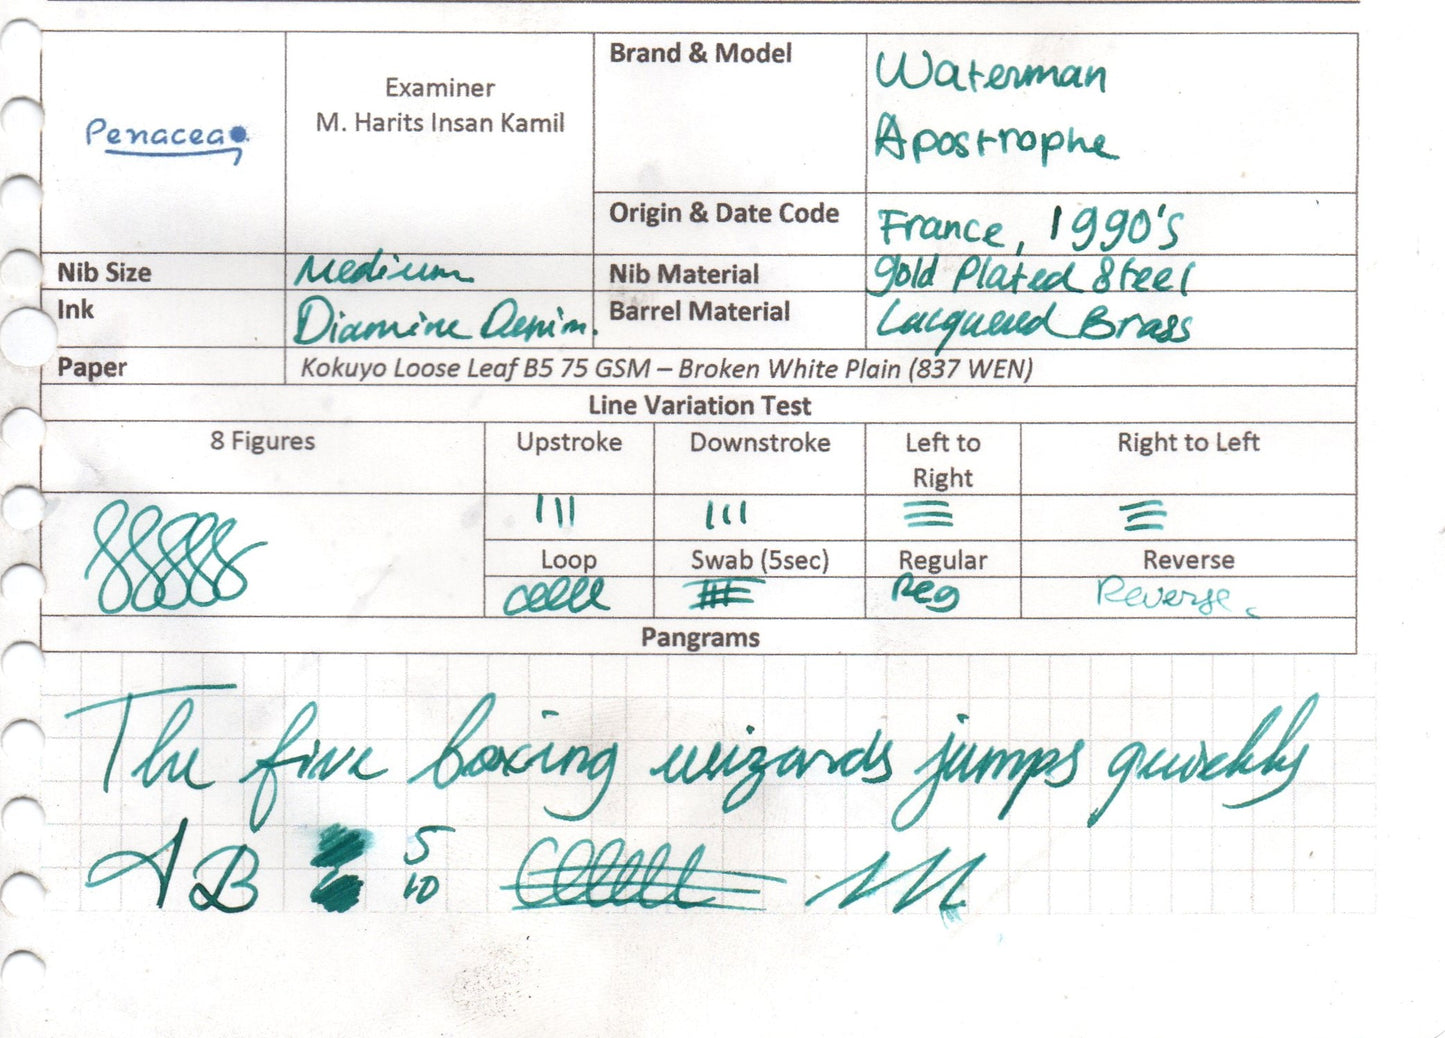 Penacea
Examiner
M. Harits Insan Kamil
Brand & Model
Waterman
Apostrophe
Origin & Date Code
France, 1990's
Nib Size
Medium
Nib Material
Gold Plated Steel
Ink
Diamine Denim.
Barrel Material
Lacquered Brass
Paper
Kokuyo Loose Leaf B5 75 GSM – Broken White Plain (837 WEN)
Line Variation Test
8 Figures
Upstroke
Downstroke
Left to
Right
Right to Left
Loop
Swab (5sec)
Regular
Reverse
Reg
Reverse
Pangrams
The five boxing wizards jumps quickly
A B
5
10